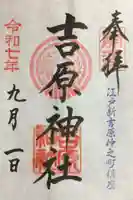 奉拝
江戸新吉原仲之町鎮座
吉原神社
令和七年
九月
一日